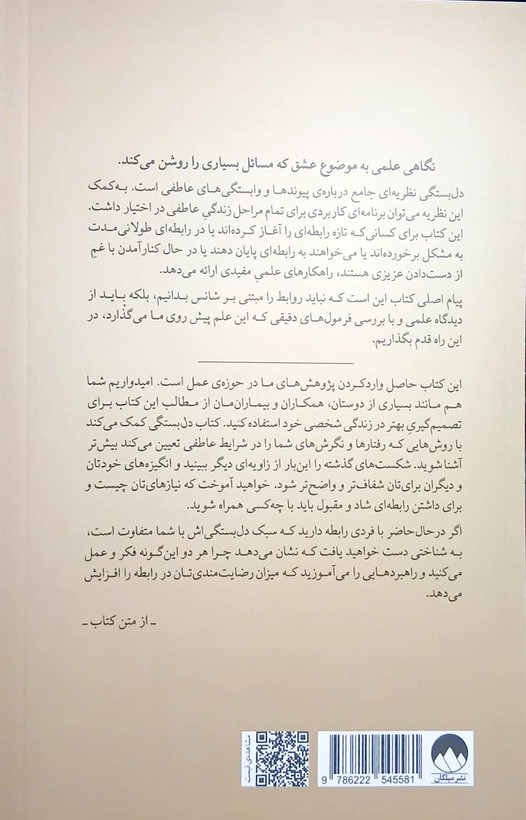 نگاهی علمی به موضوع عشق که مسائل بسیاری را روشن می‌کند.
دل‌بستگی نظریه‌ای جامع درباره‌ی پیوندها و وابستگی‌های عاطفی است. به‌کمک
این نظریه می‌توان برنامه‌ای کاربردی برای تمام مراحل زندگیِ عاطفی در اختیار داشت.
این کتاب برای کسانی‌که تازه رابطه‌ای را آغاز کرده‌اند یا در رابطه‌ای طولانی‌مدت
به مشکل برخورده‌اند یا می‌خواهند به رابطه‌ای پایان دهند یا در حال کنارآمدن با غمِ
از دست‌دادن عزیزی هستند، راهکارهای علمیِ مفیدی ارائه می‌دهد.
پیام اصلی کتاب این است که نباید روابط را مبتنی بر شانس بدانیم، بلکه باید از
دیدگاه علمی و با بررسی فرمول‌های دقیقی که این علم پیش روی ما می‌گذارد، در
این راه قدم بگذاریم.
این کتاب حاصل واردکردن پژوهش‌های ما در حوزه‌ی عمل است. امیدواریم شما
هم مانند بسیاری از دوستان، همکاران و بیماران‌مان از مطالب این کتاب برای
تصمیم‌گیریِ بهتر در زندگی شخصی خود استفاده کنید. کتاب دل‌بستگی کمک می‌کند
با روش‌هایی که رفتارها و نگرش‌های شما را در شرایط عاطفی تعیین می‌کند بیش‌تر
آشنا شوید. شکست‌های گذشته را این‌بار از زاویه‌ای دیگر ببینید و انگیزه‌های خودتان
و دیگران برای‌تان شفاف‌تر و واضح‌تر شود. خواهید آموخت که نیازهای‌تان چیست و
برای داشتن رابطه‌ای شاد و مقبول باید با چه‌کسی همراه شوید.
اگر در‌حال‌حاضر با فردی رابطه دارید که سبک دل‌بستگی‌اش با شما متفاوت است،
به شناختی دست خواهید یافت که نشان می‌دهد چرا هر دو این‌گونه فکر و عمل
می‌کنید و راهبردهایی را می‌آموزید که میزان رضایت‌مندی‌تان در رابطه را افزایش
می‌دهد.
ـ از متن کتاب ـ
مشاهده‌ی قیمت
9 786222 545581
نشر میلکان